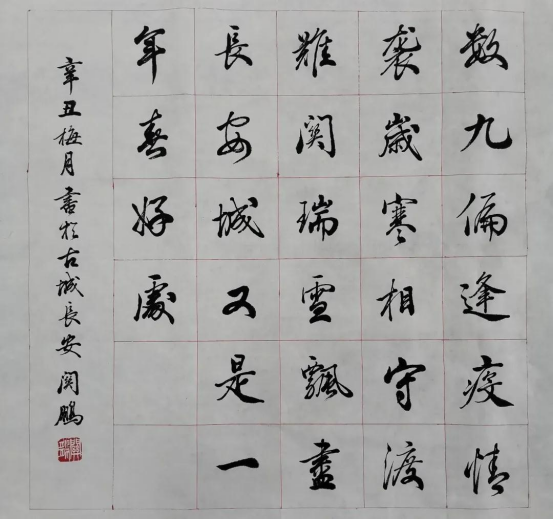 数九偏逢疫情
袭岁寒相守渡
难関瑞雪飘尽
長安城又是一
年春好處
辛丑梅月書於古城長安関鹏